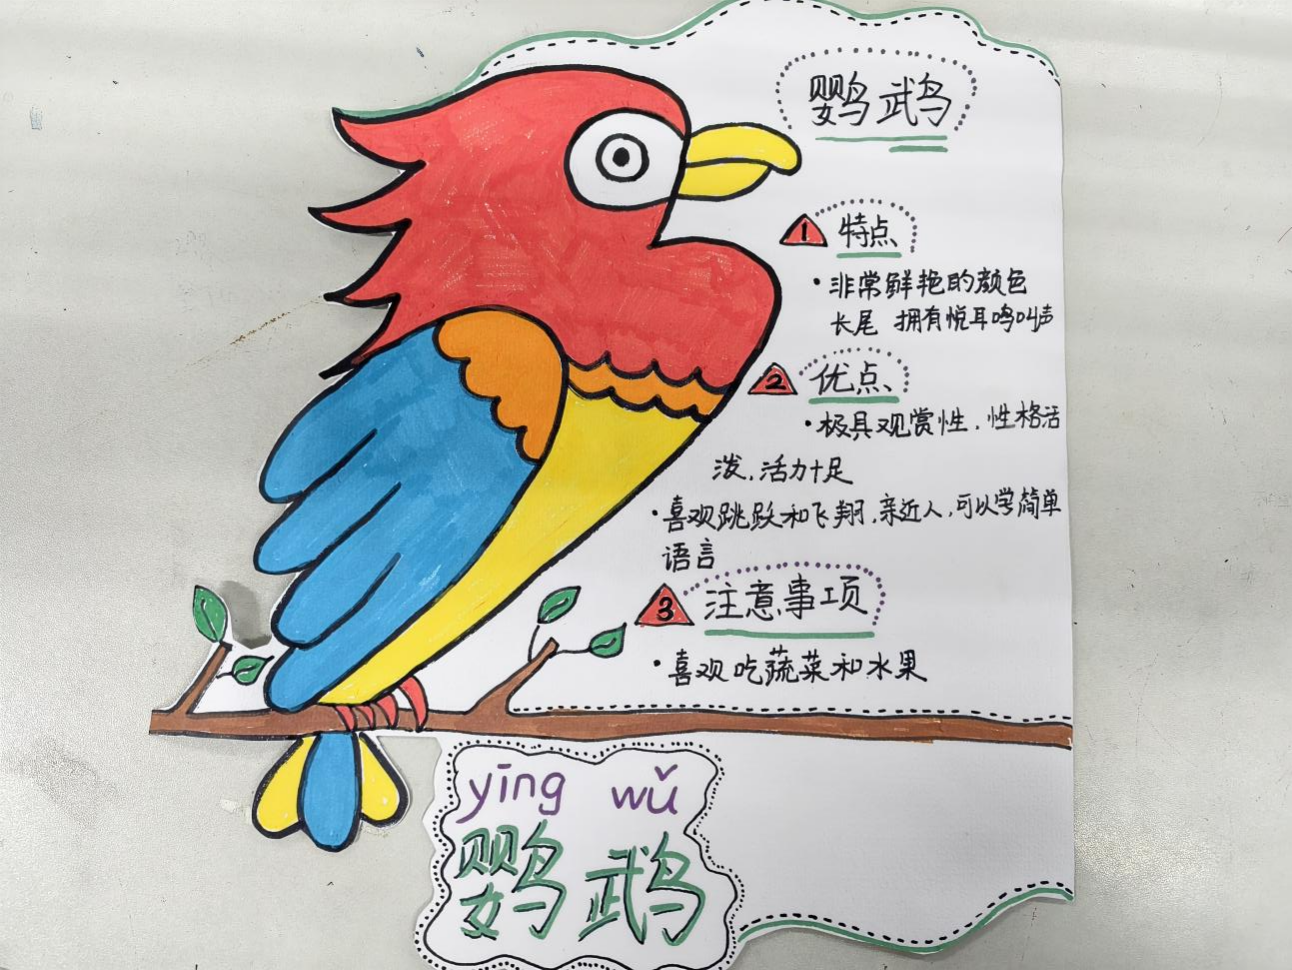 鹦鹉
1 特点
·非常鲜艳的颜色
长尾 拥有悦耳鸣叫声
2 优点
·极具观赏性,性格活
泼,活力十足
·喜欢跳跃和飞翔,亲近人,可以学简单
语言
3 注意事项
·喜欢吃蔬菜和水果
yīng wǔ
鹦鹉